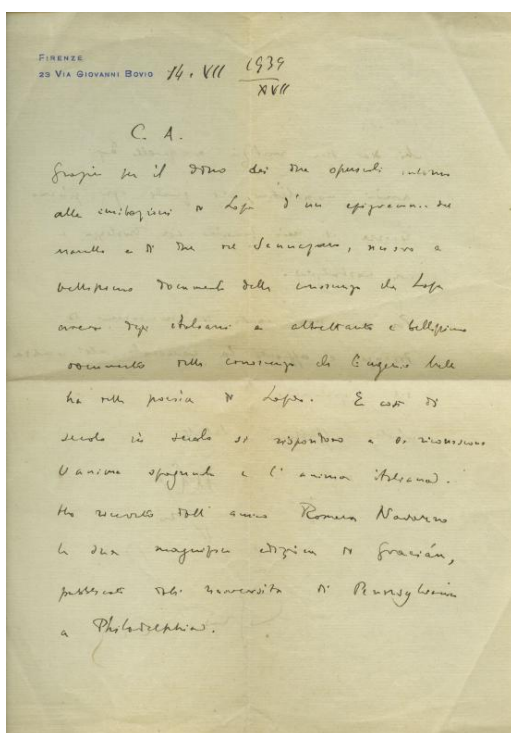 FIRENZE
23 VIA GIOVANNI BOVIO 14. VII 1939
XVII
C. A.
Grazie per il dono dei due opuscoli intorno
alle imitazioni di Lope d'un epigramma del
e di due del Sannazaro, nuovo e
bellissimo documento della conoscenza che Lope
aveva degli italiani e altrettanto e bellissimo
documento della conoscenza che Eugenio
ha della poesia di Lope. E così di
secolo in secolo si rispondono e si riconoscono
l'anima spagnuola e l'anima italiana.
Ho ricevuto dall'amico Romera Navarro
la sua magnifica edizione di Gracián,
pubblicata dalla università di Pennsylvania
a Philadelphia.